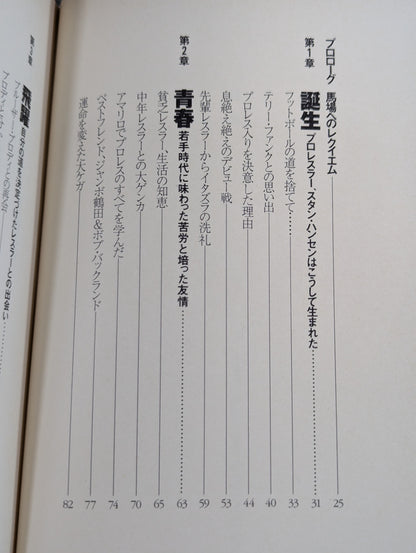 プロローグ 馬場へのレクイエム 25
第1章 誕生 プロレスラー、スタン・ハンセンはこうして生まれた 31
フットボールの道を捨てて…… 33
テリー・ファンクとの思い出 40
プロレス入りを決意した理由 44
息絶え絶えのデビュー戦 53
先輩レスラーからイタズラの洗礼 59
第2章 青春 若手時代に味わった苦労と培った友情 63
貧乏レスラー、生活の知恵 65
中年レスラーとの大ゲンカ 70
アマリロでプロレスのすべてを学んだ 74
ベストフレンド、ジャンボ鶴田&ボブ・バックランド 77
運命を変えた大ケガ 82
第3章 飛躍 自分の道を決定づけたレスラーとの出会い
ブルーザー・ブロディとの再会